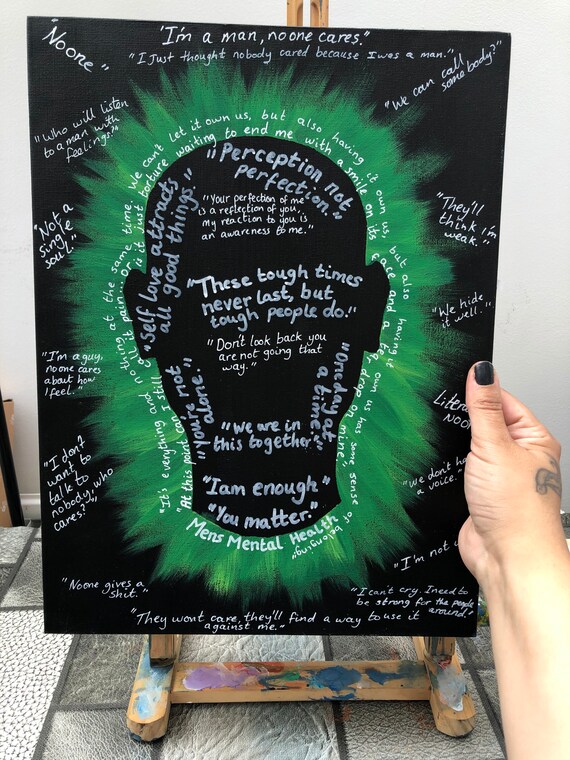 "Noone"
"I'm a man, noone cares."
"I just thought nobody cared because I was a man."
"We can call
some body?"
"Who will listen
to a man with
feelings?"
"Not a
single
soul."
"They'll
think I'm
weak."
"We hide
it well."
"I'm a guy,
noone cares
about how
I feel."
"I don't
want to
talk to
nobody, who
cares?"
NOON
"we don't ha
a voice."
"I'm not
"Noone gives a
shit."
"I can't cry. I need to
be strong for the people
around."
"They wont care, they'll find a way to use it
against me."
"It's everything and nothing at the same time. We can't let it own us, but also having it own us, but also having it own us has some sense of belonging."
"At this point can
I still
or is it just torture waiting to end me with a smile on its face and a tear drop on mine."
"Perception not
perfection."
"Self love attracts
all good things."
"Your perfection of me
is a reflection of you,
my reaction to you is
an awareness to me."
"These tough times
never last, but
tough people do."
"Don't look back you
are not going that
way."
"You're not
alone."
"One day at
a time."
"We are in
this together"
"I am enough"
"You matter."
Mens Mental Health